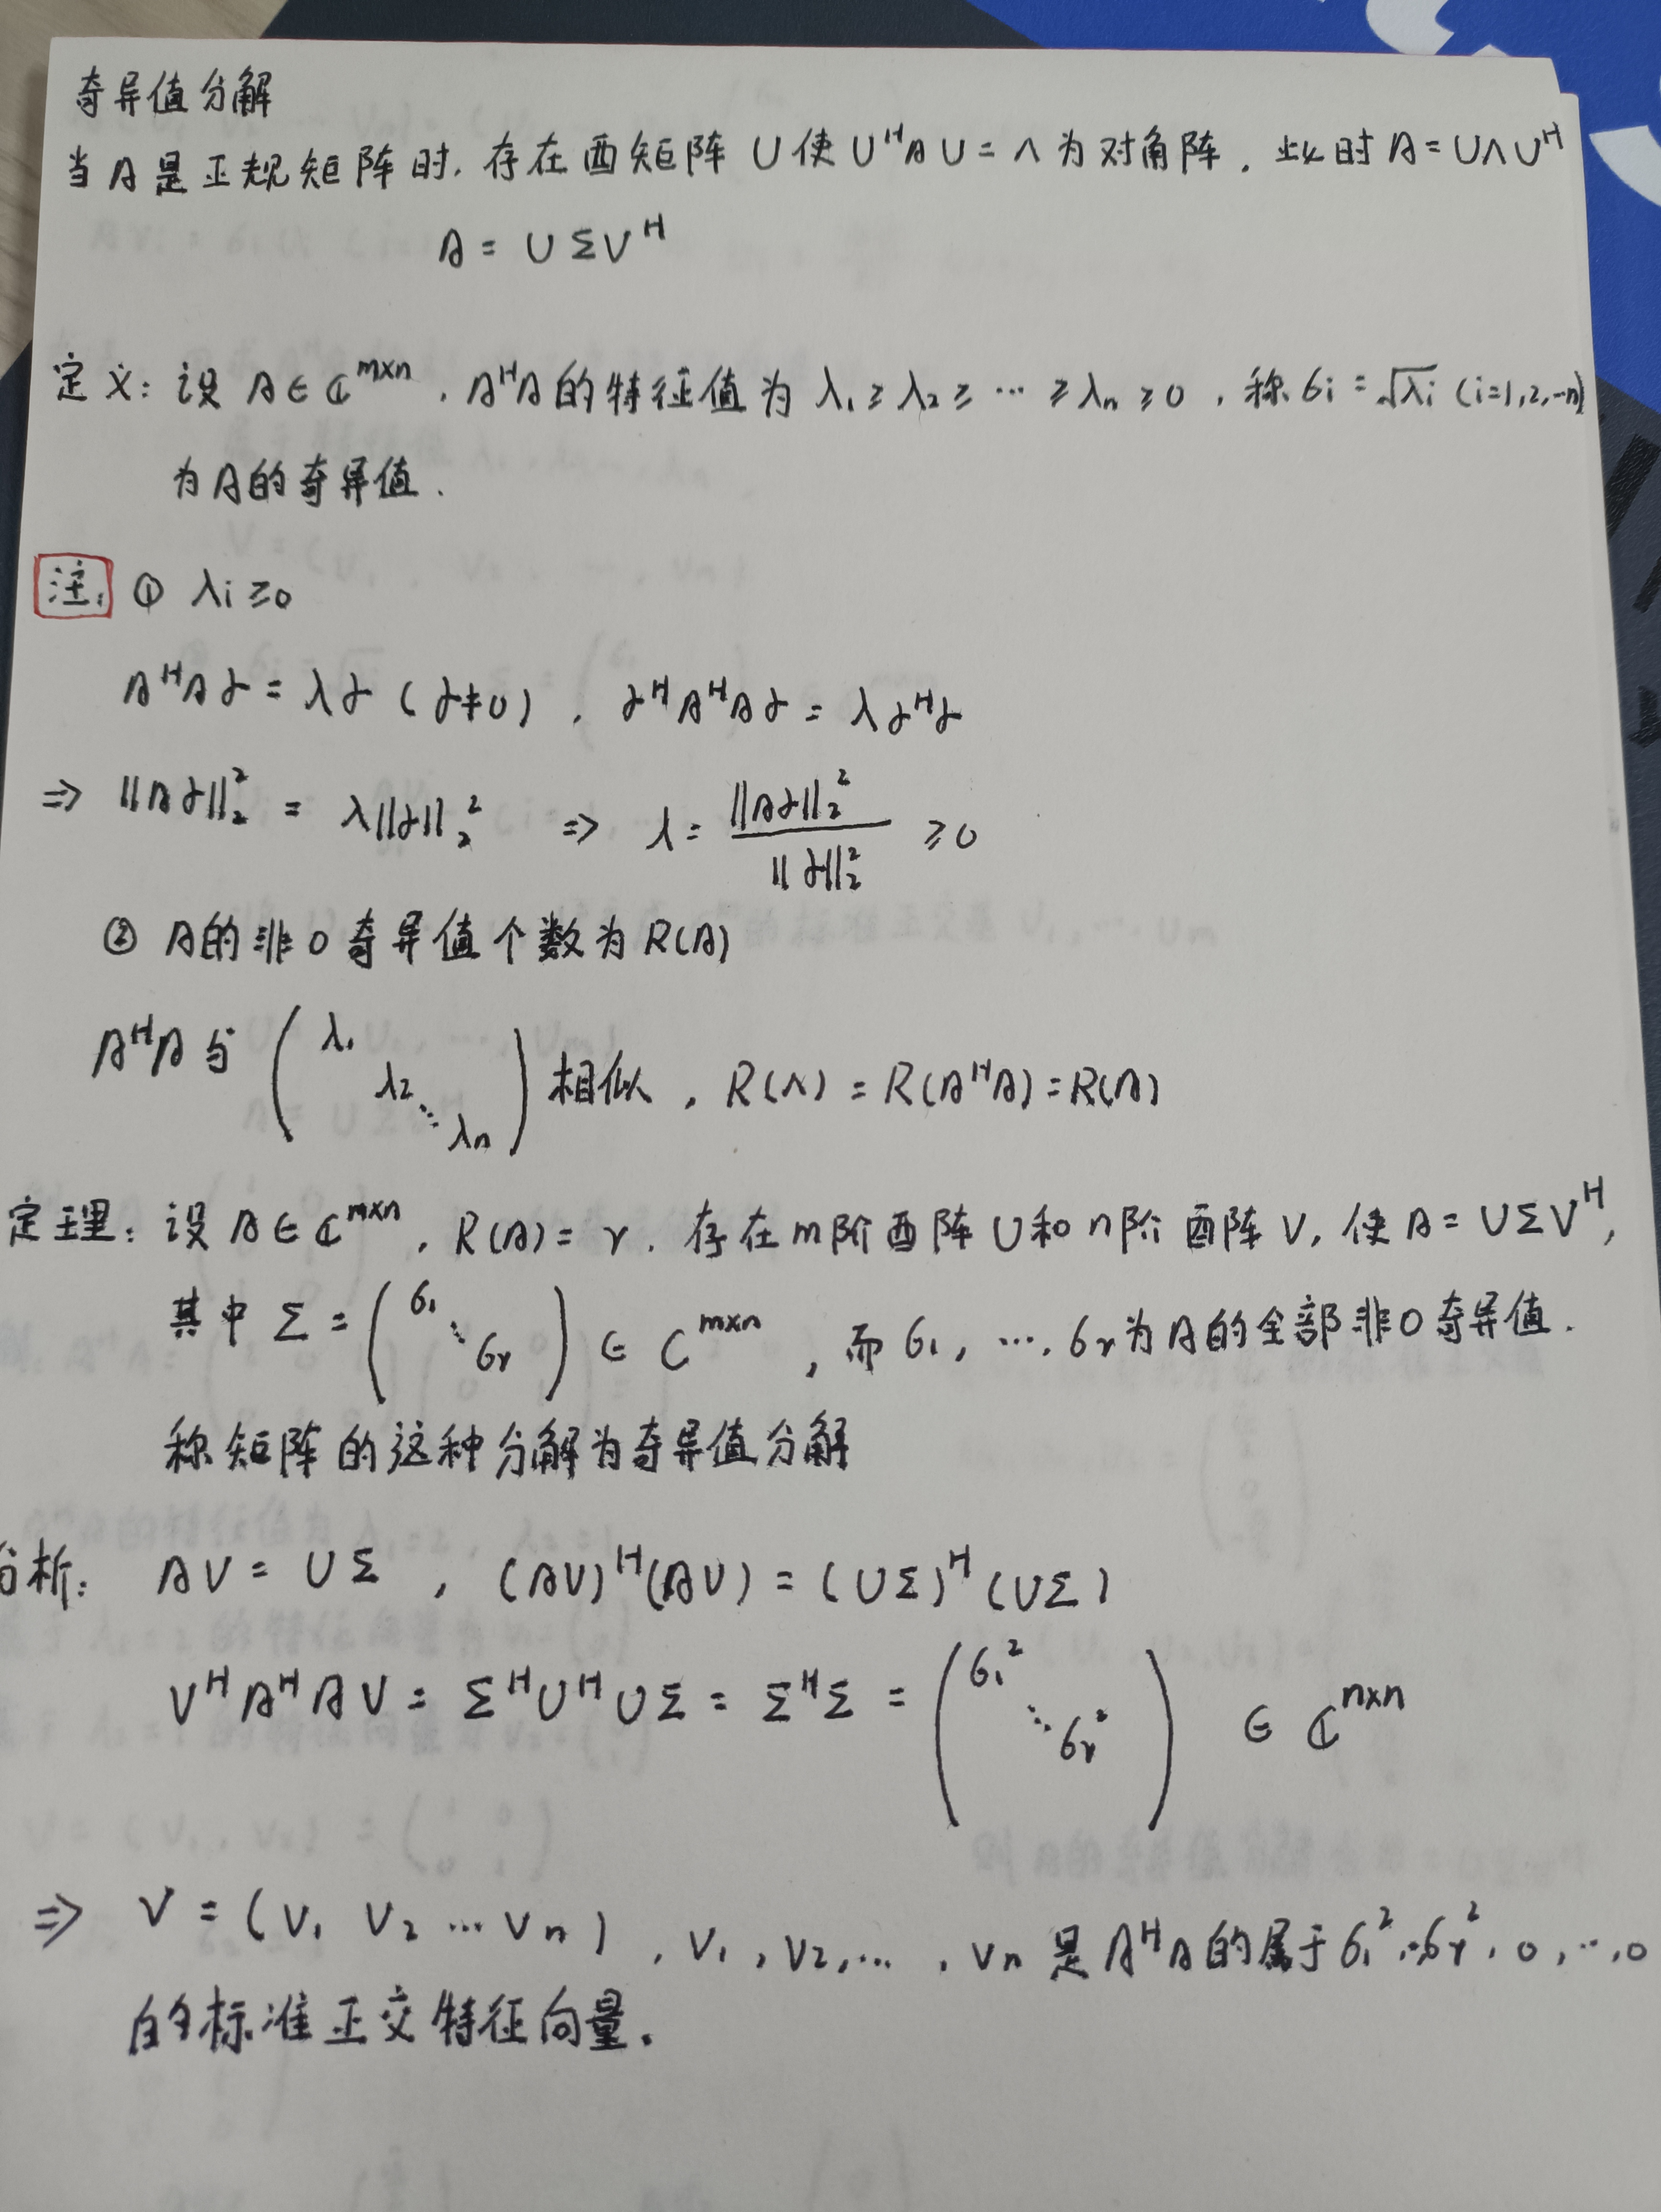 奇异值分解
当A是正规矩阵时,存在酉矩阵U使UᴴAU=Λ为对角阵,此时A=UΛUᴴ
A = UΣVᴴ
定义:设A∈ℂᵐˣⁿ,AᴴA的特征值为λ₁≥λ₂≥…≥λₙ≥0,称σᵢ=√λᵢ (i=1,2,…n)
为A的奇异值.
注: ① λᵢ≥0
AᴴAα=λα(α≠0),αᴴAᴴAα=λαᴴα
⇒ ||Aα||₂² = λ||α||₂² ⇒ λ= ||Aα||₂² / ||α||₂² ≥0
② A的非0奇异值个数为R(A)
AᴴA与 ( λ₁ λ₂ ⋱ λₙ ) 相似,R(Λ)=R(AᴴA)=R(A)
定理:设A∈ℂᵐˣⁿ,R(A)=r.存在m阶酉阵U和n阶酉阵V,使A=UΣVᴴ,
其中Σ=( σ₁ ⋱ σᵣ )∈Cᵐˣⁿ,而σ₁,…,σᵣ为A的全部非0奇异值.
称矩阵的这种分解为奇异值分解
分析: AV=UΣ,(AV)ᴴ(AV)=(UΣ)ᴴ(UΣ)
VᴴAᴴAV=ΣᴴUᴴUΣ=ΣᴴΣ=( σ₁² ⋱ σᵣ² )∈ℂⁿˣⁿ
⇒ V=(V₁ V₂ … Vₙ),V₁,V₂,…,Vₙ是AᴴA的属于σ₁²,…σᵣ²,0,…,0
的标准正交特征向量.